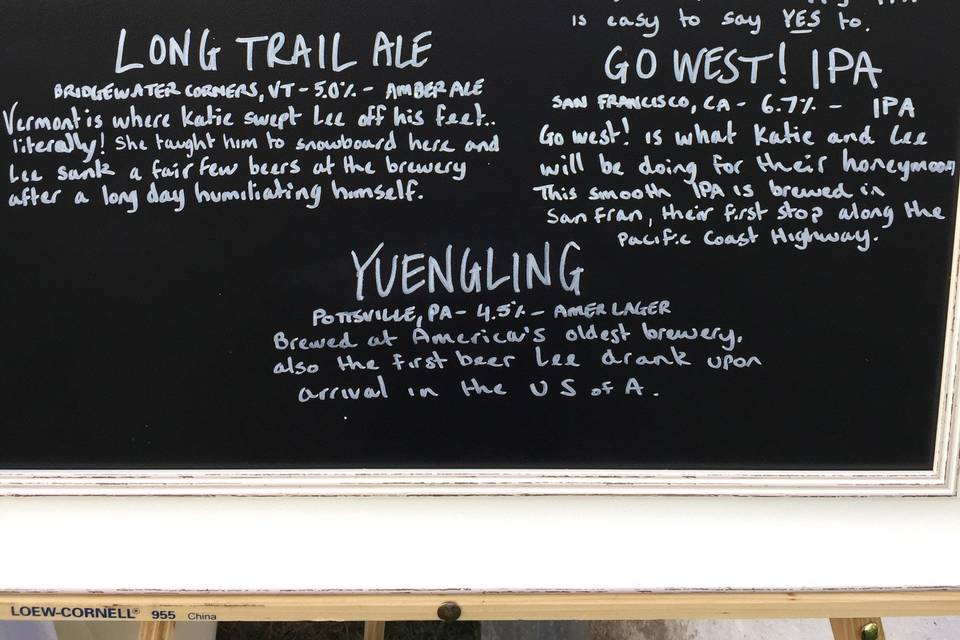 is easy to say YES to.
LONG TRAIL ALE
BRIDGEWATER CORNERS, VT - 5.0% - AMBER ALE
Vermont is where Katie swept Lee off his feet..
literally! She taught him to snowboard here and
Lee sank a fair few beers at the brewery
after a long day humiliating himself.
GO WEST! IPA
SAN FRANCISCO, CA - 6.7% - IPA
Go west! is what Katie and Lee
will be doing for their honeymoon
This smooth IPA is brewed in
San Fran, their first stop along the
Pacific Coast Highway.
YUENGLING
POTTSVILLE, PA - 4.5% - AMER LAGER
Brewed at America's oldest brewery,
also the first beer Lee drank upon
arrival in the US of A.
LOEW-CORNELL® 955 China